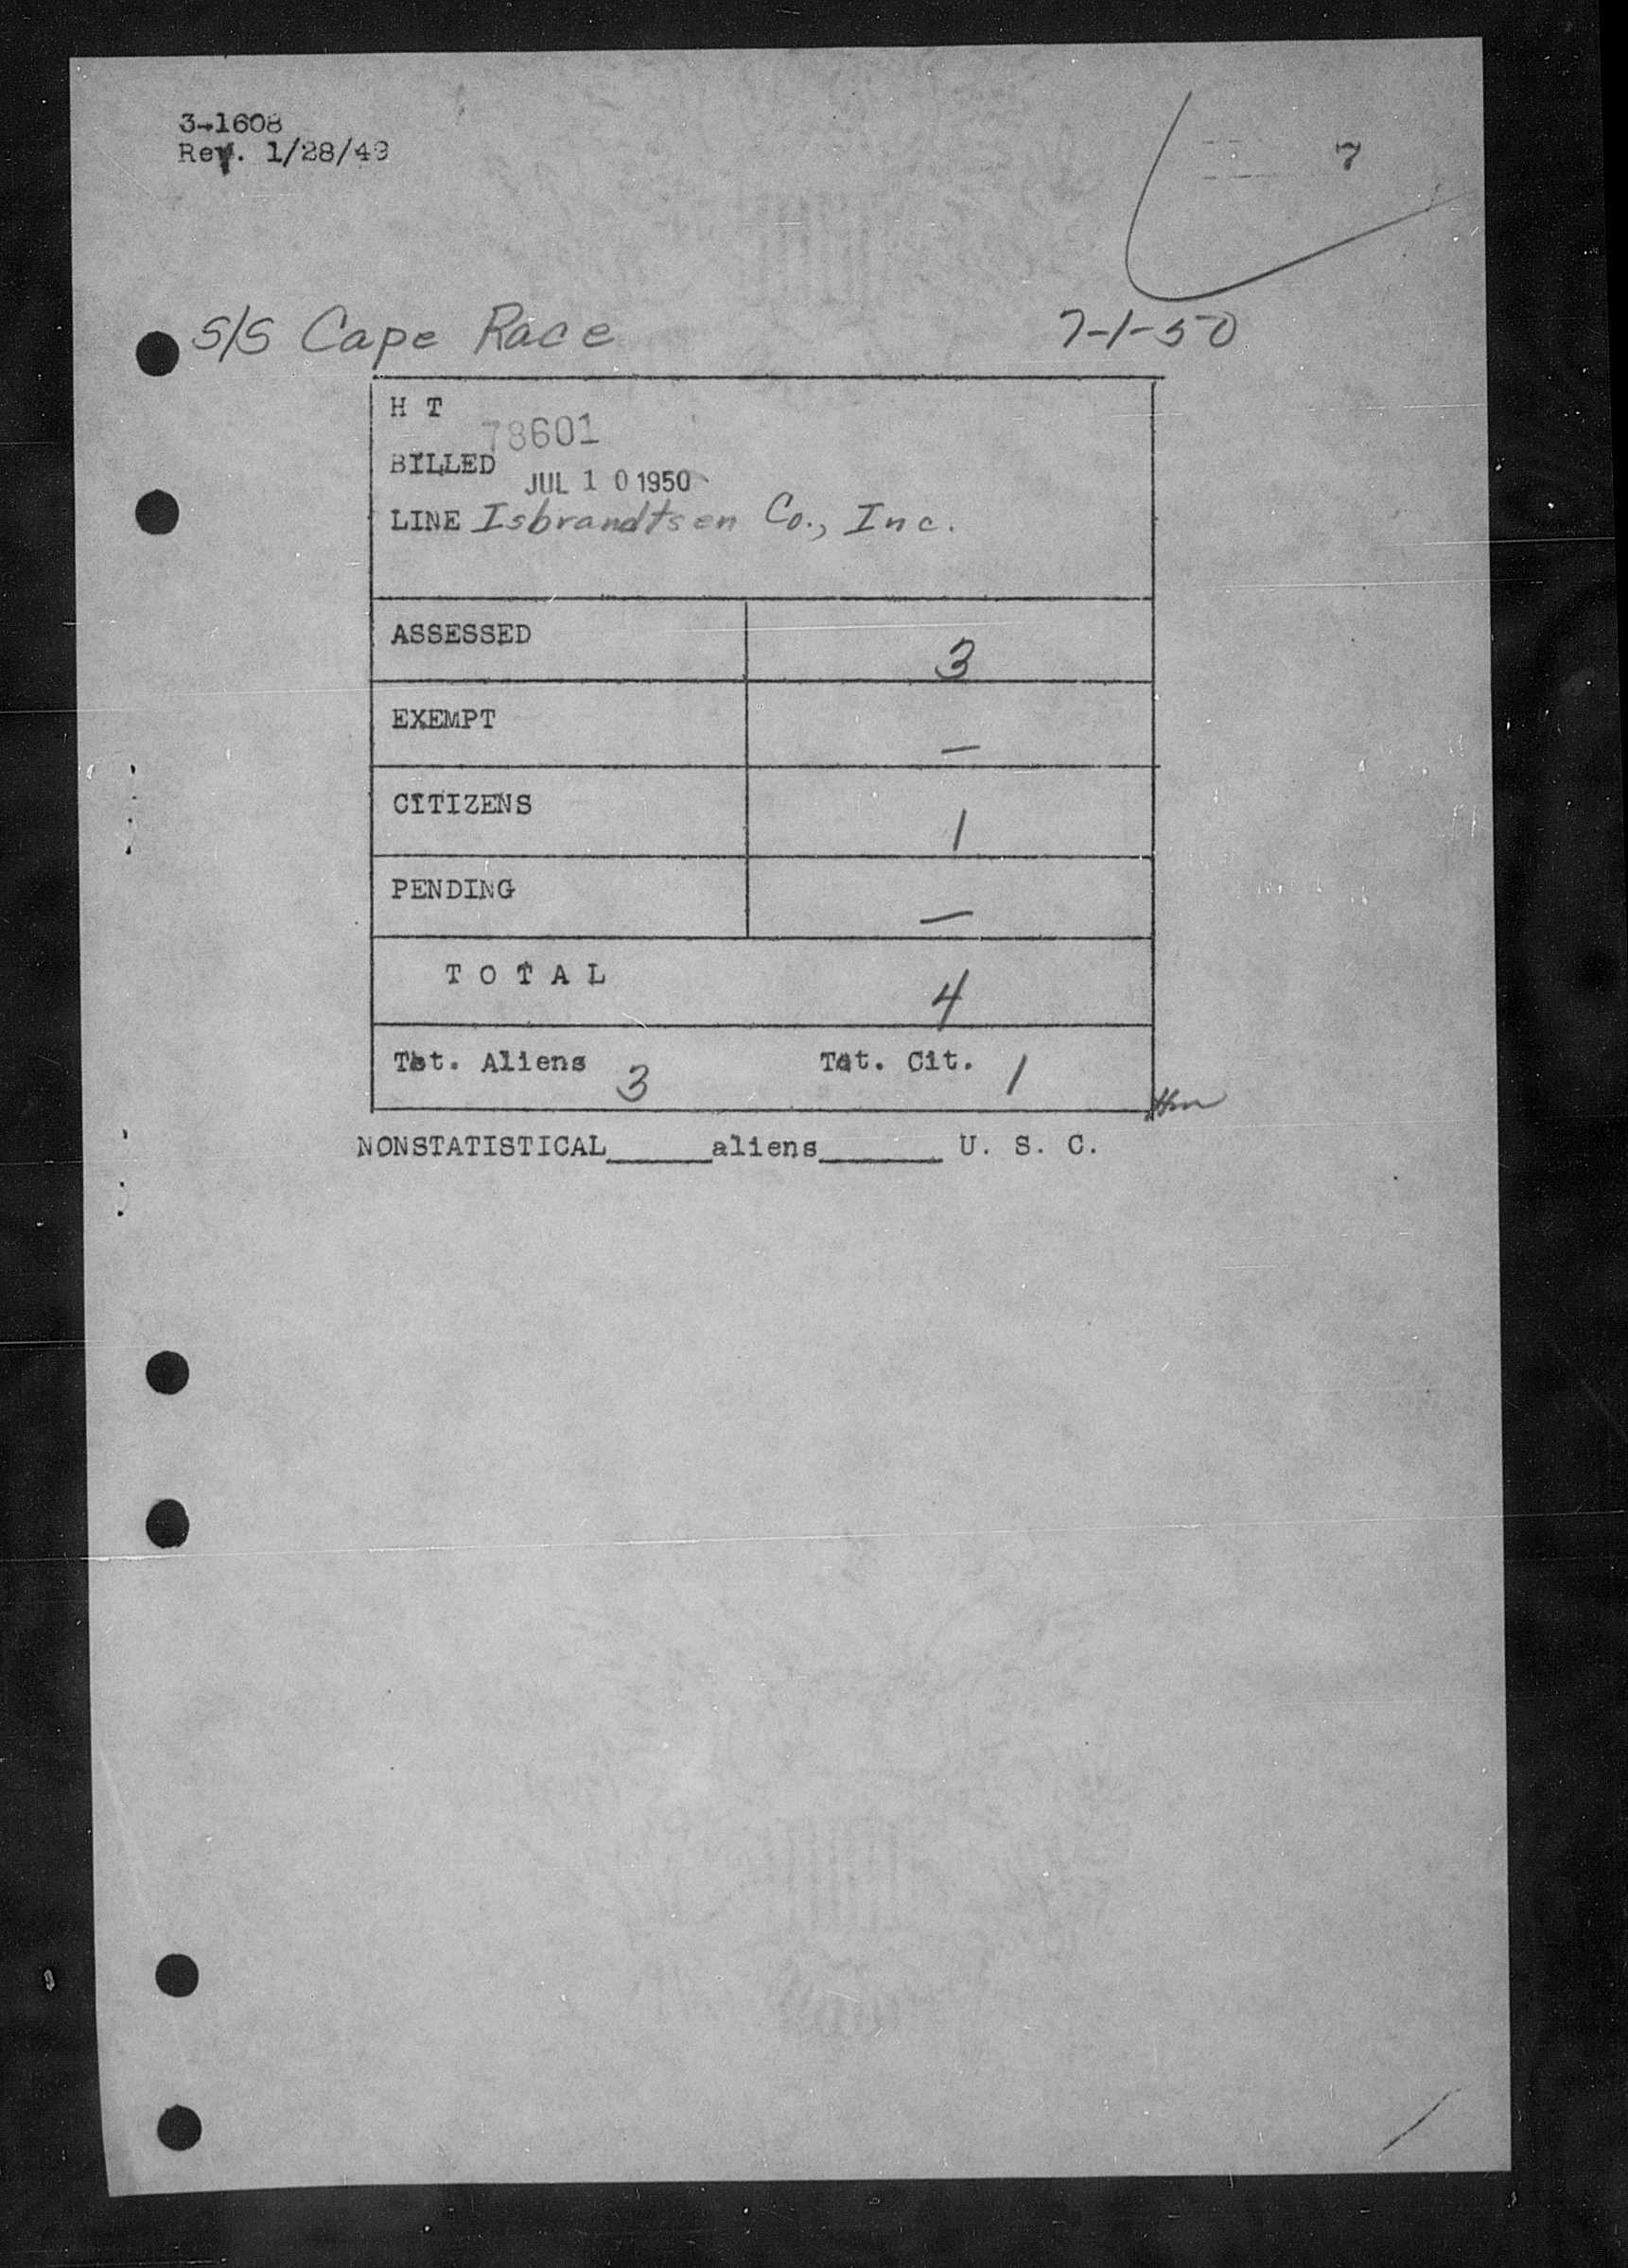 3-1608
Rev. 1/28/49
7
S/S Cape Race 7-1-50
H T
78601
BILLED
JUL 10 1950
LINE Isbrandtsen Co., Inc.
ASSESSED 3
EXEMPT —
CITIZENS 1
PENDING —
T O T A L 4
Tot. Aliens 3 Tot. Cit. 1
NONSTATISTICAL_____aliens______ U. S. C.